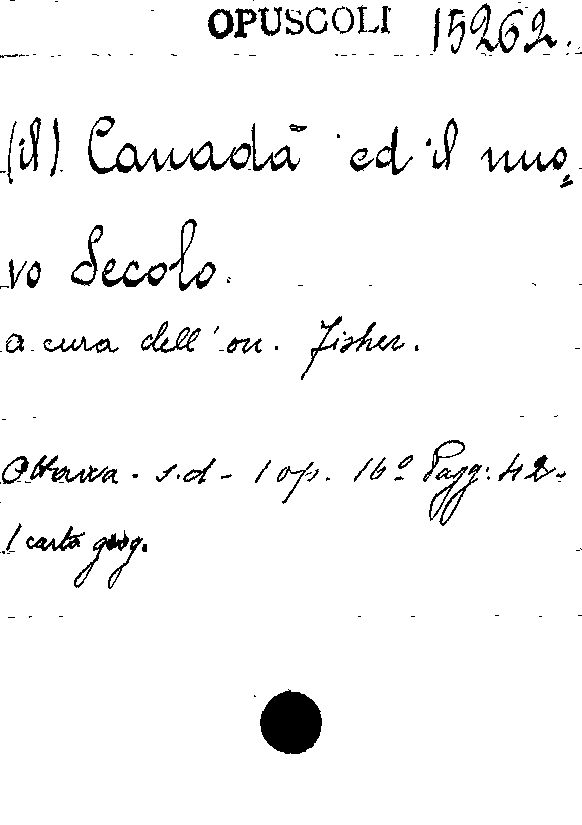 OPUSCOLI 15262.
(il) Canadà ed il nuo=
vo Secolo.
a cura dell'on. Fisher.
Ottawa. s.d - 1 op. 16º Pagg: 42.
1 carta geog.